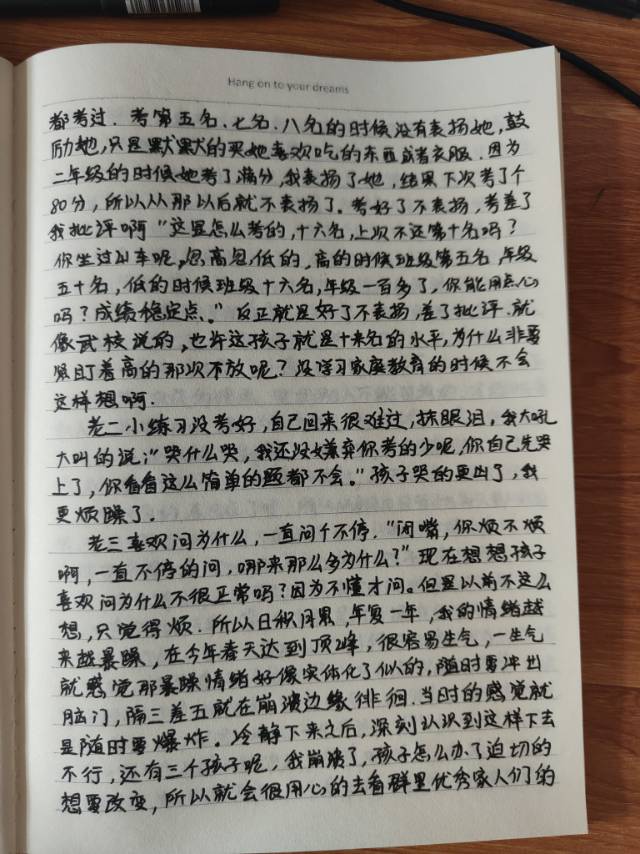 Hang on to your dreams
都考过．考第五名、七名、八名的时候没有表扬她，鼓
励她，只是默默的买她喜欢吃的东西或者衣服．因为
二年级的时候她考了满分，我表扬了她，结果下次考了个
80分，所以从那以后就不表扬了。考好了不表扬，考差了
我批评啊“这里怎么考的，十六名，上次不还第十名吗？
你坐过山车呢，忽高忽低的，高的时候班级第五名，年级
五十名，低的时候班级十六名，年级一百多了，你能用点心
吗？成绩稳定点。”反正就是好了不表扬，差了批评．就
像武校说的，也许这孩子就是十来名的水平，为什么非要
紧盯着高的那次不放呢？没学习家庭教育的时候不会
这样想啊．
老二小练习没考好，自己回来很难过，抹眼泪，我大吼
大叫的说；“哭什么哭，我还没嫌弃你考的少呢，你自己先哭
上了，你看看这么简单的题都不会。”孩子哭的更凶了，我
更烦躁了．
老三喜欢问为什么，一直问个不停．“闭嘴，你烦不烦
啊，一直不停的问，哪来那么多为什么？”现在想想孩子
喜欢问为什么不很正常吗？因为不懂才问。但是以前不这么
想，只觉得烦．所以日积月累，年复一年，我的情绪越
来越暴躁，在今年春天达到顶峰，很容易生气，一生气
就感觉那暴躁情绪好像实体化了似的，随时要冲出
脑门，隔三差五就在崩溃边缘徘徊．当时的感觉就
是随时要爆炸。冷静下来之后，深刻认识到这样下去
不行，还有三个孩子呢，我崩溃了，孩子怎么办了迫切的
想要改变，所以就会很用心的去看群里优秀家人们的